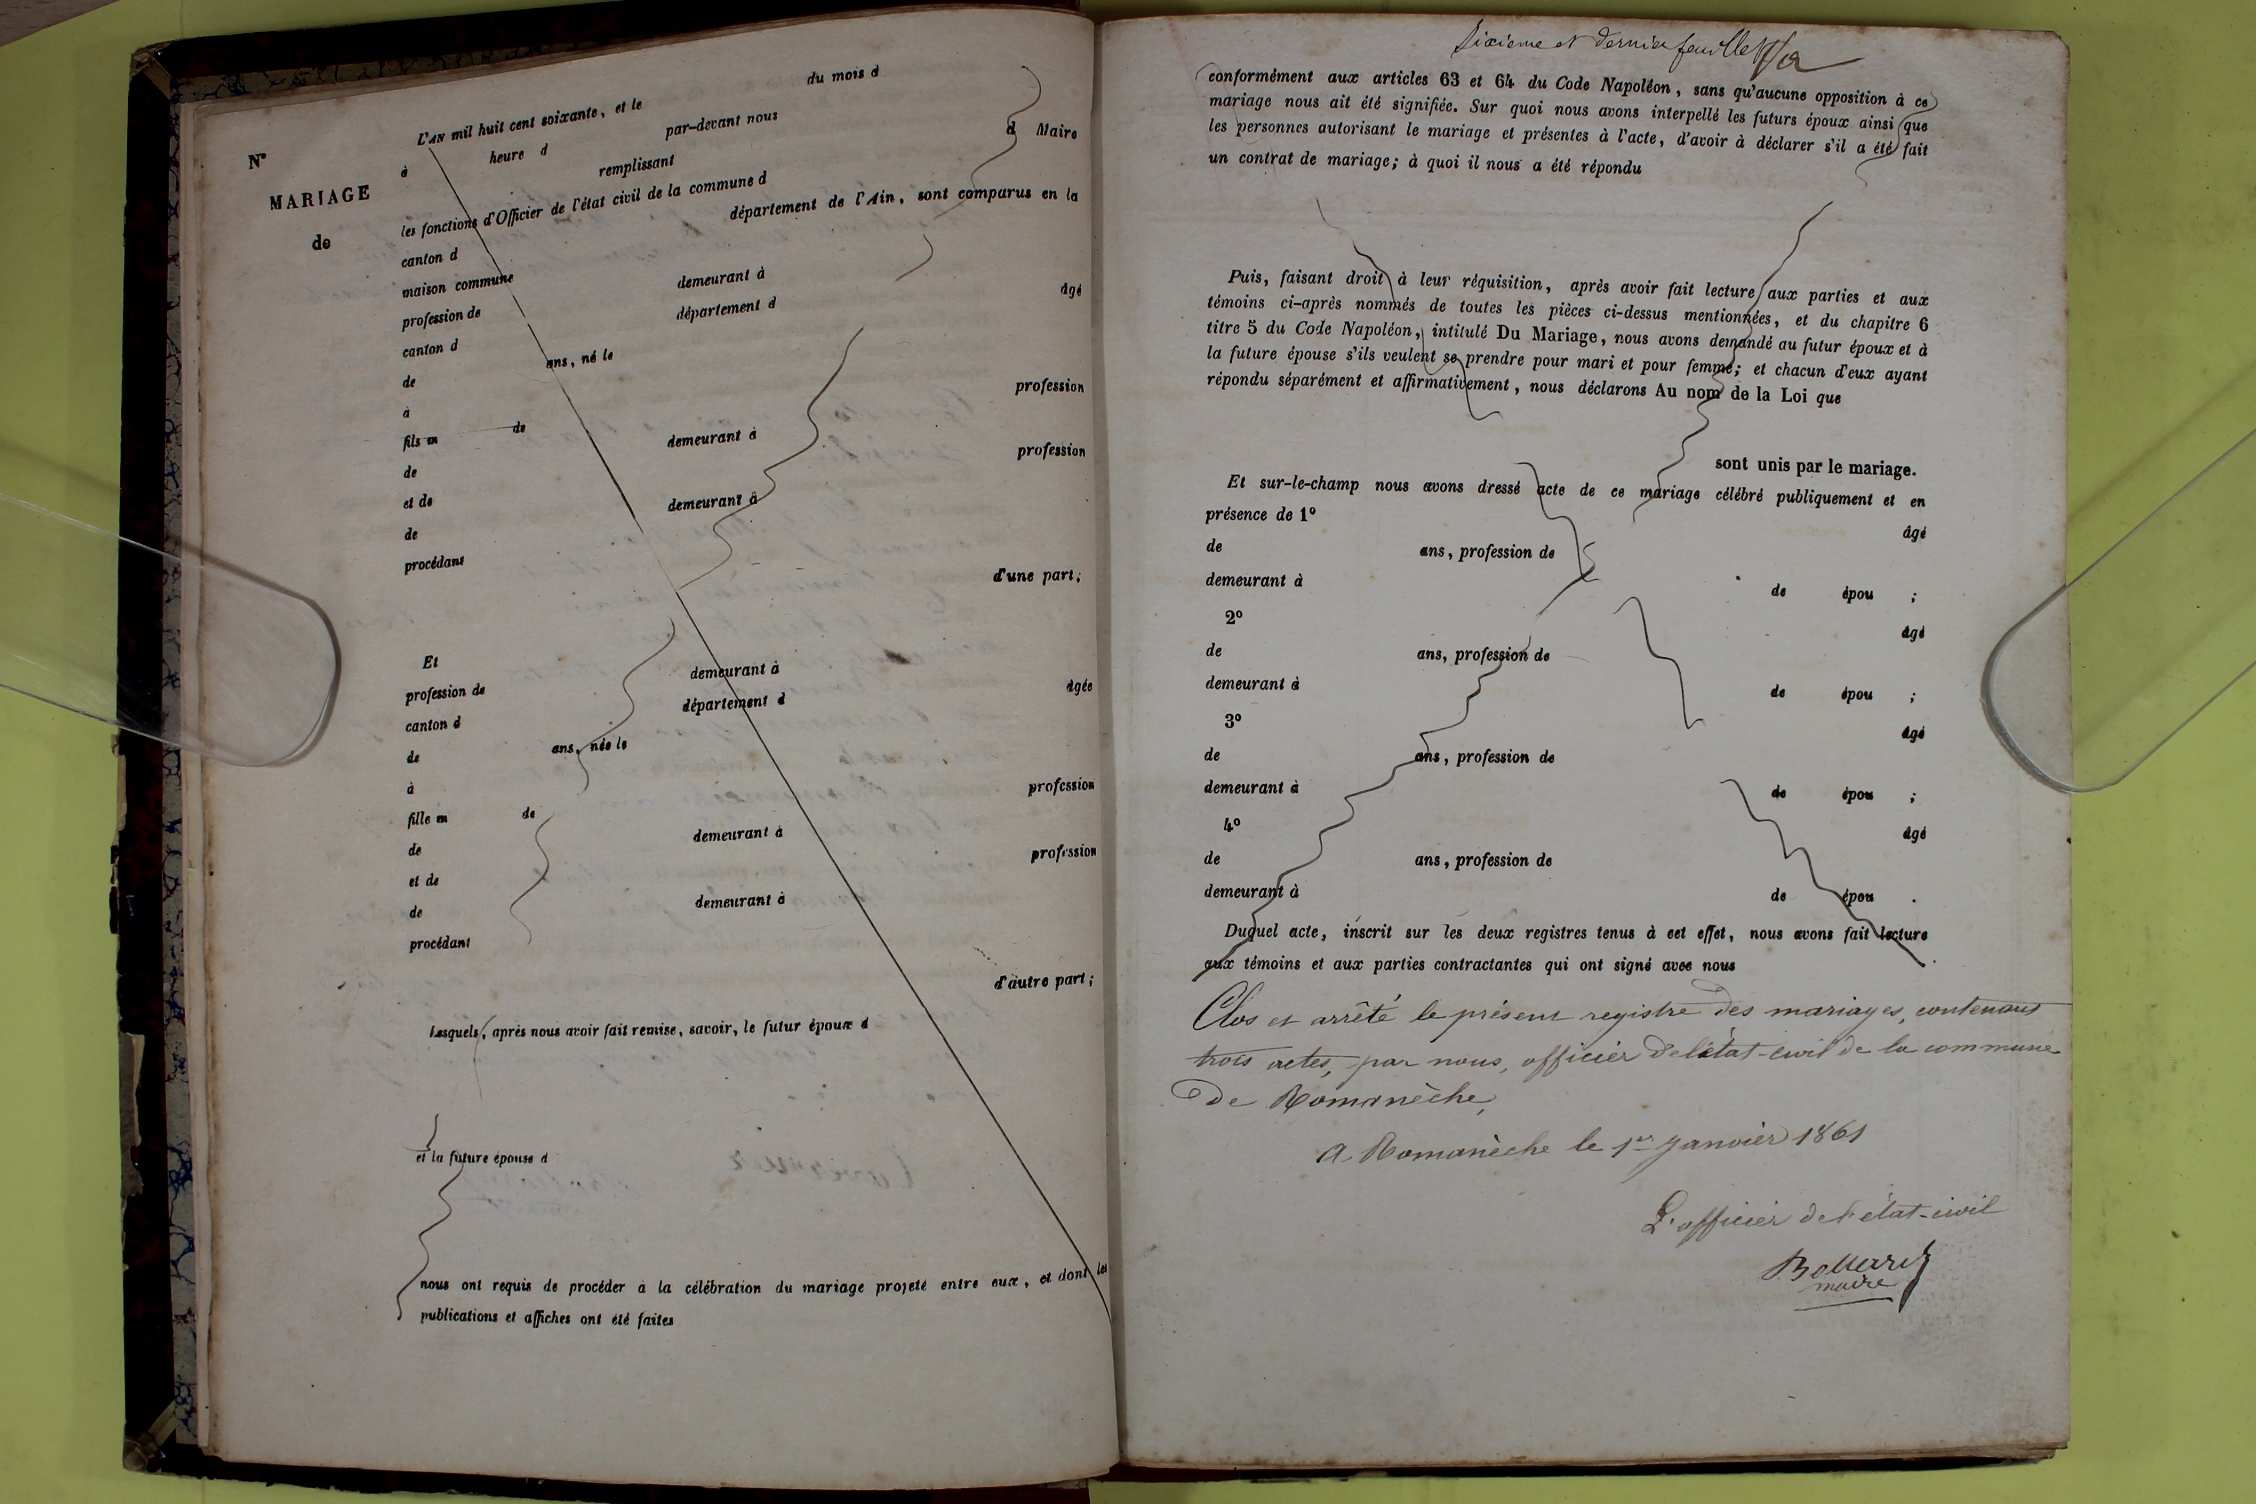 L'AN mil huit cent soixante, et le du mois d
N° à heure d par-devant nous
MARIAGE remplissant d Maire
de les fonctions d'Officier de l'état civil de la commune d
canton d département de l'Ain, sont comparus en la
maison commune
profession de demeurant à
canton d département d âgé
de ans, né le
à
fils m de profession
de demeurant à
et de profession
de demeurant à
procédant
d'une part;
Et
profession de demeurant à
canton d département d âgée
de ans, née le
à
fille m de profession
de demeurant à
et de profession
de demeurant à
procédant
d'autre part;
Lesquels, après nous avoir fait remise, savoir, le futur époux d
et la future épouse d
nous ont requis de procéder à la célébration du mariage projeté entre eux, et dont les
publications et affiches ont été faites
Sixième et dernier feuillet
conformément aux articles 63 et 64 du Code Napoléon, sans qu'aucune opposition à ce
mariage nous ait été signifiée. Sur quoi nous avons interpellé les futurs époux ainsi que
les personnes autorisant le mariage et présentes à l'acte, d'avoir à déclarer s'il a été fait
un contrat de mariage; à quoi il nous a été répondu
Puis, faisant droit à leur réquisition, après avoir fait lecture aux parties et aux
témoins ci-après nommés de toutes les pièces ci-dessus mentionnées, et du chapitre 6
titre 5 du Code Napoléon, intitulé Du Mariage, nous avons demandé au futur époux et à
la future épouse s'ils veulent se prendre pour mari et pour femme; et chacun d'eux ayant
répondu séparément et affirmativement, nous déclarons Au nom de la Loi que
sont unis par le mariage.
Et sur-le-champ nous avons dressé acte de ce mariage célébré publiquement et en
présence de 1° âgé
de ans, profession de
demeurant à de épou ;
2° âgé
de ans, profession de
demeurant à de épou ;
3° âgé
de ans, profession de
demeurant à de épou ;
4° âgé
de ans, profession de
demeurant à de épou .
Duquel acte, inscrit sur les deux registres tenus à cet effet, nous avons fait lecture
aux témoins et aux parties contractantes qui ont signé avec nous
Clos et arrêté le présent registre des mariages, contenant
trois actes, par nous, officier de l'état-civil de la commune
de Romanèche,
A Romanèche le 1er Janvier 1861
L'officier de l'état-civil
maire